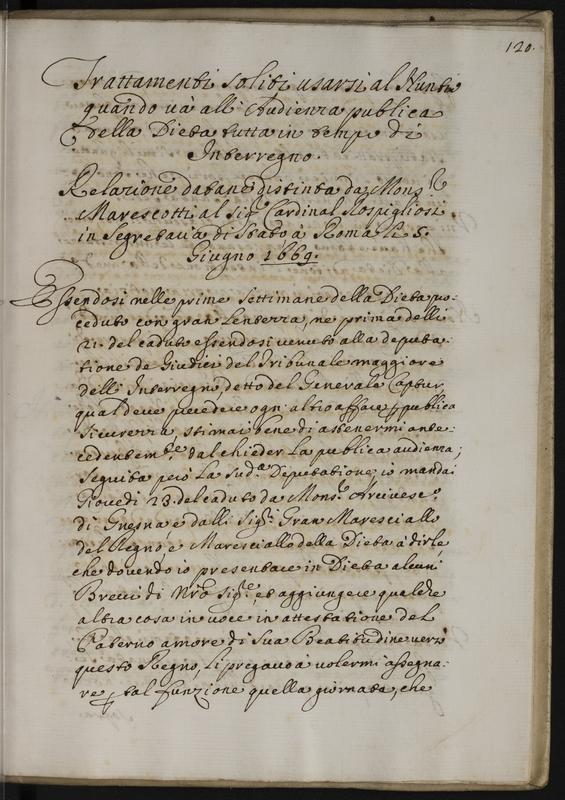 120.
Trattamenti soliti usarsi al Nuntio
quando và all' Audienza publica
della Dieta tutta in tempo di
Interregno.
Relatione datane distinta da Mons.r
Marescotti al Sig.r Cardinal Rospigliosi
in Segretaria di Stato à Roma li 5.
Giugno 1669.
Essendosi nelle prime settimane della Dieta pro-
ceduto con gran lentezza, ne prima delli
21. del caduto essendosi venuto alla deputa-
tione de Giudici del Tribunale maggiore
dell' Interregno, detto del Generale Captur,
qual deve precedere ogn' altro affare p publica
sicurezza, stimai bene di astenermi ante-
cedentem.te dal chieder la publica audienza;
seguita però la sud.a Deputatione, io mandai
Giovedi 23. del caduto da Mons.r Arcivesc.o
di Gnesna e dalli Sig.ri Gran Maresciallo
del Regno, e Maresciallo della Dieta à dirle,
che dovendo io presentare in Dieta alcuni
Brevi di Nro Sig.re, et aggiungere qualche
altra cosa in voce in attestatione del
Paterno amore di Sua Beatitudine verso
questo Regno, li pregavo à volermi assegna-
re p tal funzione quella giornata, che